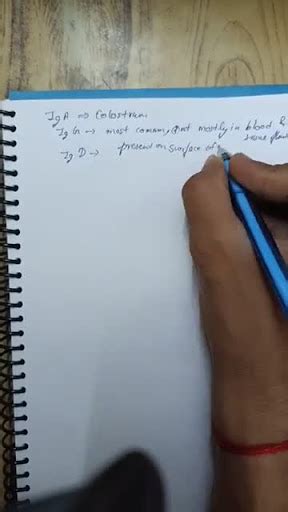 IgA => Colostrum
IgG -> most common, mostly in blood &
tissue
IgD -> present on surface of